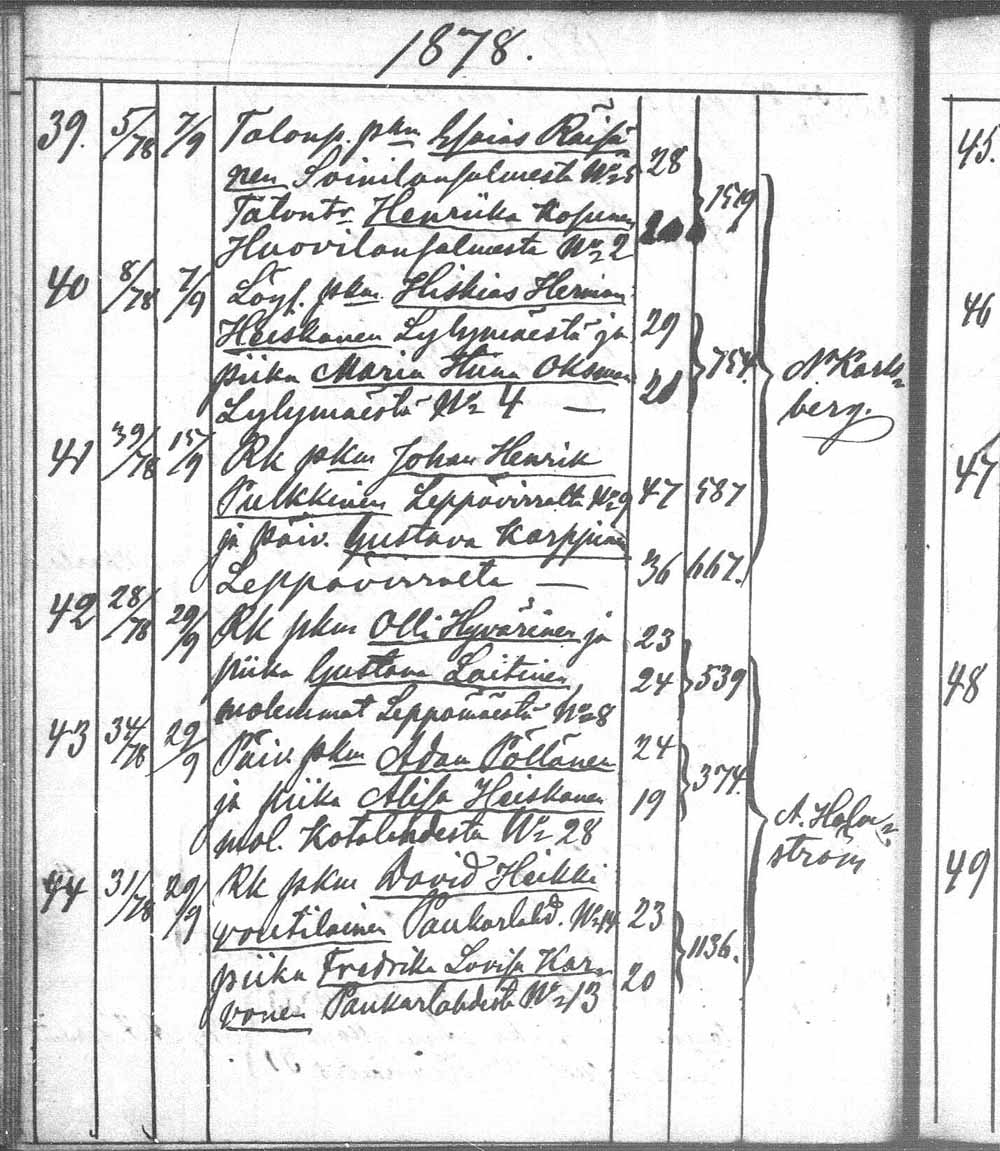 1878.
39. 5/78 7/9 Talonp. pkm Esaias Räisä=
nen Soinilansalmesta No 5 28
Talontr Henriika Kosunen 159
Huovilansalmesta No 2
40 8/78 7/9 Löysl. pkm. Hiskias Herman
Heiskanen Lylymäestä ja 29
piika Maria Stiina Oksman 20 754.
Lylymäestä No 4 —
N. Karls=
berg.
41 39/78 15/9 Rk pkm Johan Henrik
Pulkkinen Leppävirralta No 9 47 587
ja Päiv. Gustava Karppinen
Leppävirralta — 36 667.
42 28/78 29/9 Rk pkm Olli Hyvärinen ja 23
piika Gustava Laitinen 24 539
molemmat Leppämäestä No 8
43 34/78 29/9 Päiv. pkm Adam Pöllänen 24
ja piika Alisa Heiskanen 19 374.
mol. Kotalahdesta No 28
A. Holm=
ström
44 31/78 29/9 Rk pkm David Heikki
Voutilainen Paukarlahd. No 14 23
piika Fredrika Lovisa Kar= 20 1136.
vonen Paukarlahdesta No 13
45.
46
47
48
49